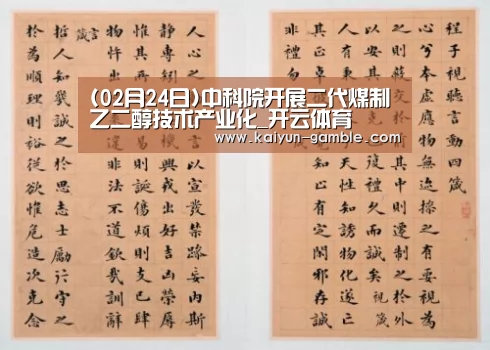 (02月24日)中科院开展二代煤制
乙二醇技术产业化_开云体育
www.kaiyun-gamble.com
程子視聽言動四箴
心兮本虛應物無迹操之有要視為
之則蔽交於前其中則遷制之於外
以安其
復禮久而誠矣 視箴
人有秉
天性知誘物化遂亡
其正卓
知止有定閑邪存誠
非禮勿
人心之
言以宣發禁躁妄內斯
靜專矧
興戎出好吉凶榮辱
惟其
易則誕傷煩則支己肆
物忤出
違非法不道欽哉訓辭
言箴
哲人知幾誠之於思志士勵行守之
於為順理則裕從欲惟危造次克念